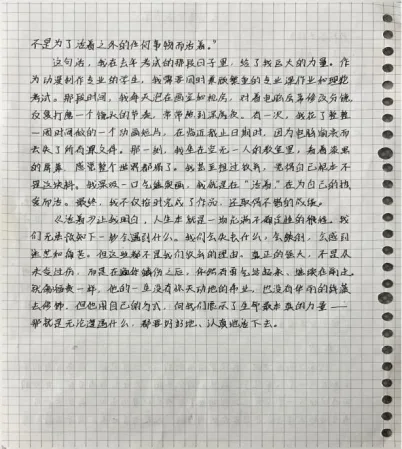 不是为了活着之外的任何事物而活着。”
这句话，我在去年考试的那段日子里，给了我巨大的力量。作
为动漫制作专业的学生，我需要同时兼顾繁重的专业课作业和理论
考试。那段时间，我每天泡在画室和机房，对着电脑屏幕修改分镜，
反复打磨一个镜头的节奏，常常熬到深夜。有一次，我花了整整
一周时间做的一个动画短片，在临近截止日期时，因为电脑崩溃而
丢失了所有源文件。那一刻，我坐在空无一人的教室里，看着漆黑
的屏幕，感觉整个世界都塌了。我甚至想过放弃，觉得自己根本不
是这块料。我深吸一口气继续画，我就是在“活着”在为自己的热
爱而活。最终，我不仅按时完成了作品，还取得不错的成绩。
《活着》让我明白，人生本就是一场充满不确定性的旅程。我
们无法预知下一秒会遇到什么。我们会失去什么，会挫折，会感到
迷茫和痛苦。但这些都不是我们放弃的理由。真正的强大，不是从
未受过伤，而是在遍体鳞伤之后，依然有勇气站起来，继续向前走。
就像福贵一样，他的一生没有惊天动地的伟业，也没有华丽的辞藻
去修饰，但他用自己的方式，向我们展示了生命最本真的力量——
那就是无论遭遇什么，都要好好地、认真地活下去。